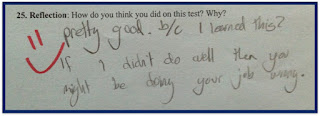 25. Reflection: How do you think you did on this test? Why?
pretty good. b/c I learned this?
If I didn't do well then you
might be doing your job wrong.